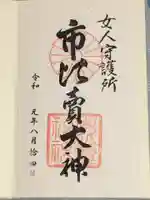 女人守護所
市比賣大神
令和
元年八月拾四日